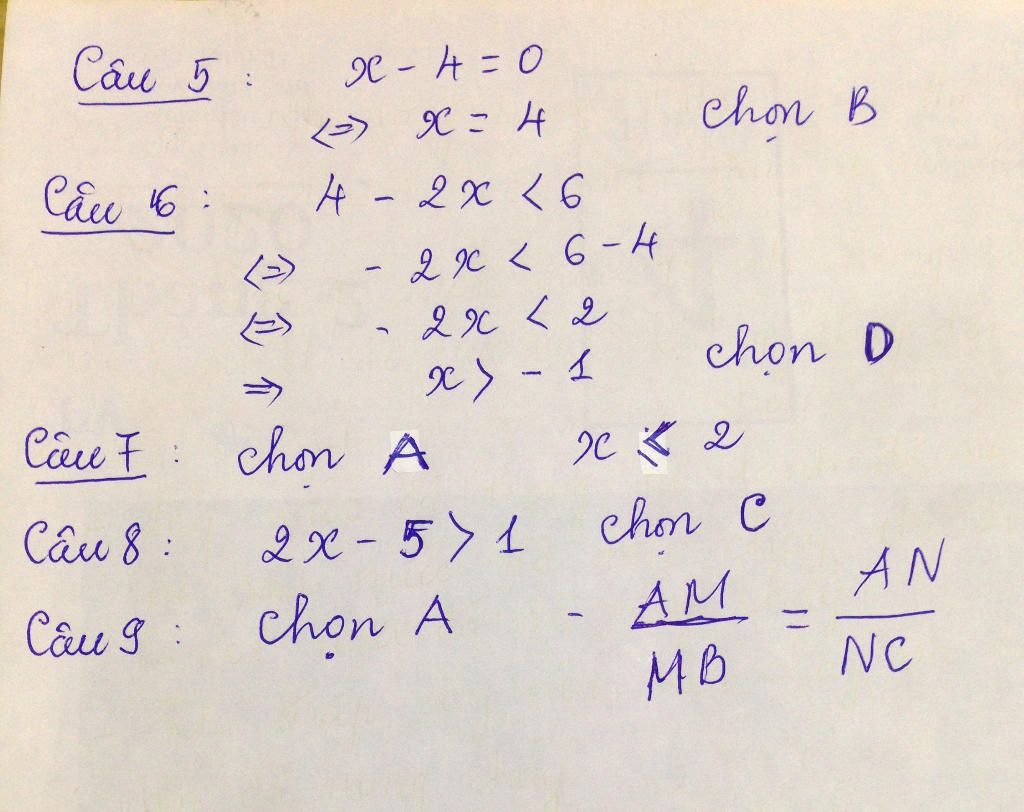 Câu 5 : x - 4 = 0
<=> x = 4 chọn B
Câu 6 : 4 - 2x < 6
<=> - 2x < 6 - 4
<=> - 2x < 2
=> x > - 1 chọn D
Câu 7 : chọn A x ⩽ 2
Câu 8 : 2x - 5 > 1 chọn C
Câu 9 : chọn A - AM/MB = AN/NC